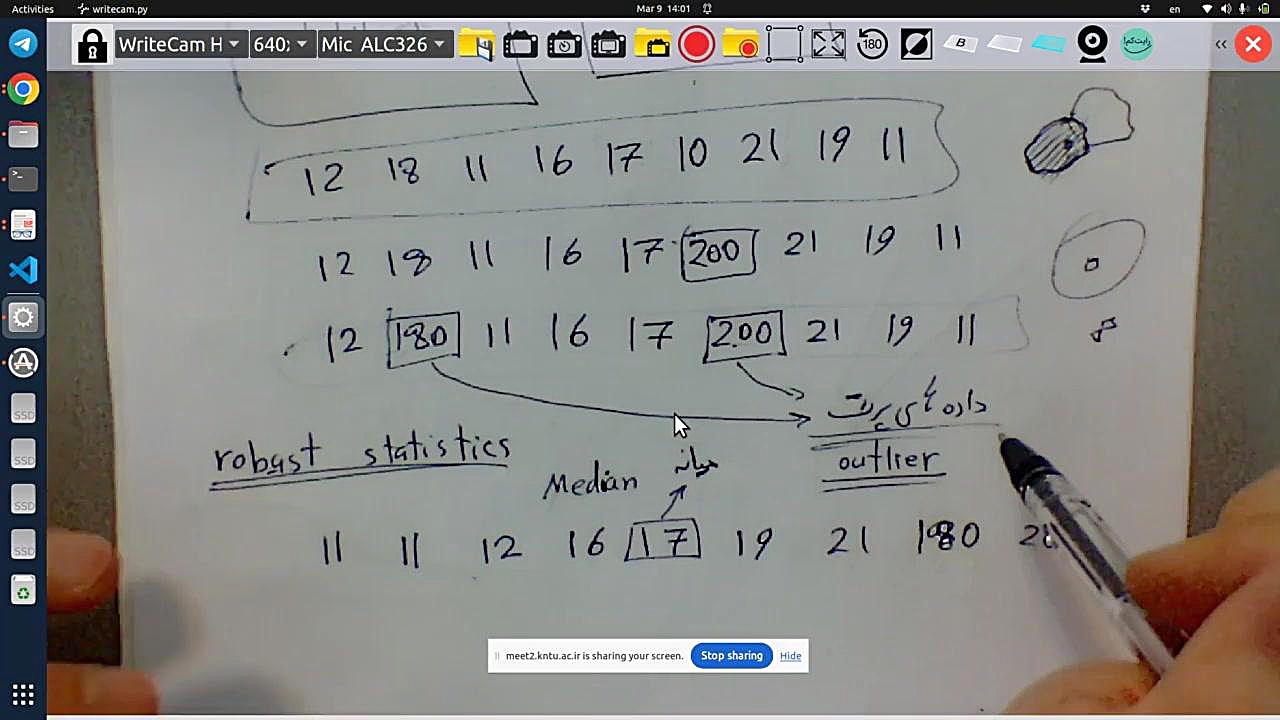 Activities writecam.py Mar 9 14:01 en
WriteCam H 640: Mic ALC326 180 B
12 18 11 16 17 10 21 19 11
12 18 11 16 17 200 21 19 11
12 180 11 16 17 200 21 19 11
داده های پرت
robast statistics
outlier
Median میانه
11 11 12 16 17 19 21 180
SSD
SSD
SSD
SSD
meet2.kntu.ac.ir is sharing your screen. Stop sharing Hide